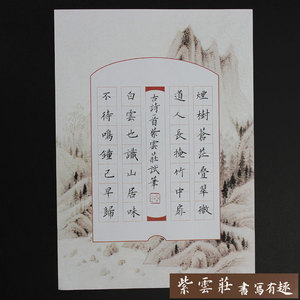 煙樹蒼茫疊翠微
道人長掩竹中扉
古詩一首紫雲莊試筆
白雲也識山居味
不待鳴鐘已早歸
紫雲莊 書寫有趣